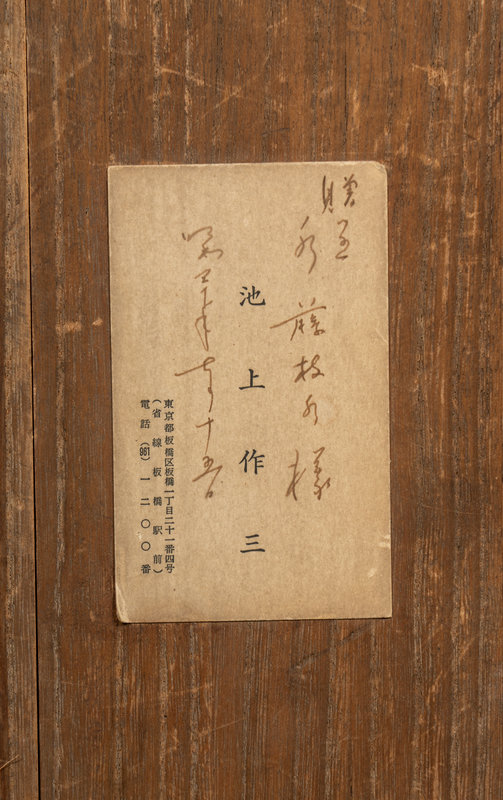 贈呈
藤枝 様
池上作三
昭四十年 十五日
東京都板橋区板橋一丁目二十一番四号
(省線板橋駅前)
電話(961)一二〇〇番